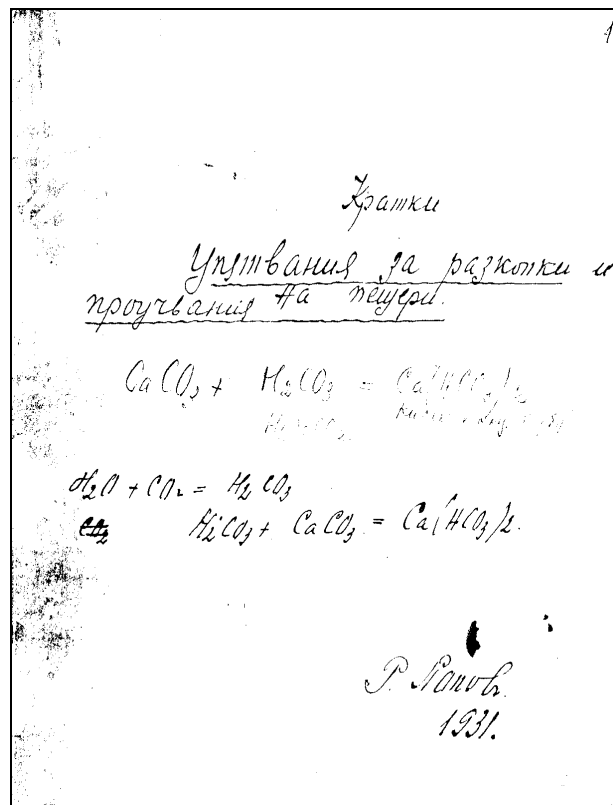 1
Кратки
Упѫтвания за разкопки и
проучвания на пещери.
CaCO3 + H2CO3 = Ca(HCO3)2
H2O + CO2 = H2CO3
CO2 H2CO3 + CaCO3 = Ca(HCO3)2.
Р. Попов.
1931.